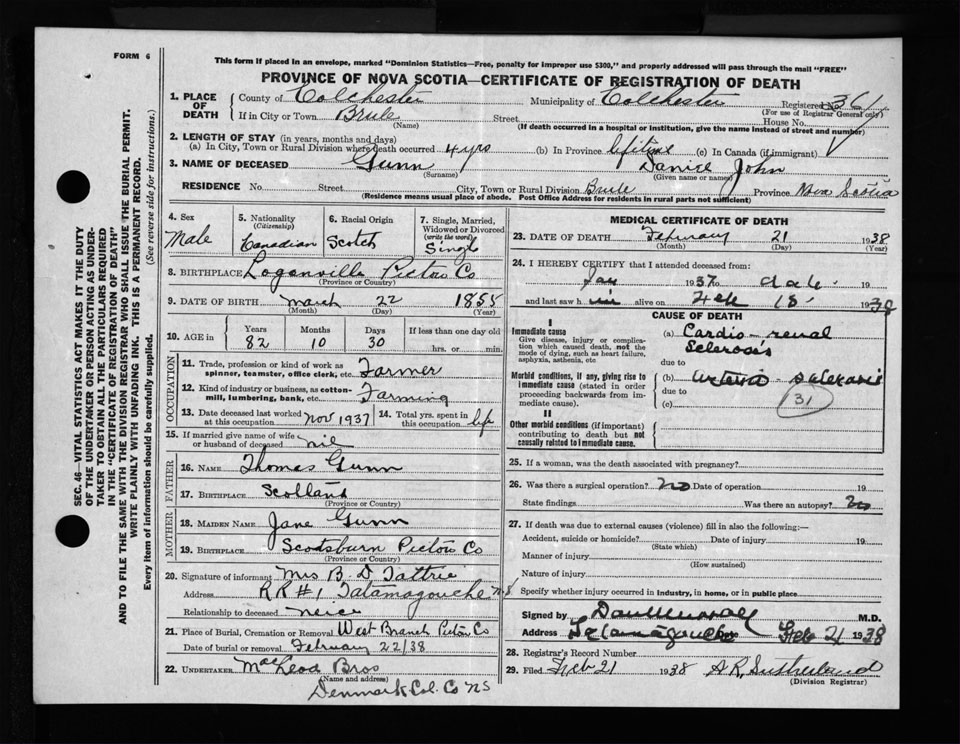 FORM 6
This form if placed in an envelope, marked "Dominion Statistics—Free, penalty for improper use $300," and properly addressed will pass through the mail "FREE"
PROVINCE OF NOVA SCOTIA—CERTIFICATE OF REGISTRATION OF DEATH
SEC. 46—VITAL STATISTICS ACT MAKES IT THE DUTY
OF THE UNDERTAKER OR PERSON ACTING AS UNDER-
TAKER TO OBTAIN ALL THE PARTICULARS REQUIRED
IN THE "CERTIFICATE OF REGISTRATION OF DEATH"
AND TO FILE THE SAME WITH THE DIVISION REGISTRAR WHO SHALL ISSUE THE BURIAL PERMIT.
WRITE PLAINLY WITH UNFADING INK. THIS IS A PERMANENT RECORD.
Every item of information should be carefully supplied. (See reverse side for instructions.)
1. PLACE OF DEATH
County of Colchester Municipality of Colchester Registered No. 361
(For use of Registrar General only)
If in City or Town Brule Street House No.
(Name) (If death occurred in a hospital or institution, give the name instead of street and number)
2. LENGTH OF STAY (in years, months and days)
(a) In City, Town or Rural Division where death occurred 4 yrs (b) In Province lifetime (c) In Canada (if immigrant)
3. NAME OF DECEASED Gunn John
(Surname) (Given name or names)
RESIDENCE No. Street City, Town or Rural Division Brule Province Nova Scotia
(Residence means usual place of abode. Post Office Address for residents in rural parts not sufficient)
4. Sex
Male
5. Nationality
(Citizenship)
Canadian
6. Racial Origin
Scotch
7. Single, Married,
Widowed or Divorced
(write the word)
Single
8. BIRTHPLACE Loganville Pictou Co
(Province or Country)
9. DATE OF BIRTH March 22 1855
(Month) (Day) (Year)
10. AGE in Years Months Days If less than one day old
82 10 30 hrs. or min.
OCCUPATION
11. Trade, profession or kind of work as
spinner, teamster, office clerk, etc. Farmer
12. Kind of industry or business, as cotton-
mill, lumbering, bank, etc. Farming
13. Date deceased last worked
at this occupation Nov 1937
14. Total yrs. spent in
this occupation life
15. If married give name of wife
or husband of deceased nil
FATHER
16. NAME Thomas Gunn
17. BIRTHPLACE Scotland
MOTHER
18. MAIDEN NAME Jane Gunn
19. BIRTHPLACE Scotsburn Pictou Co
(Province or Country)
20. Signature of informant Mrs B. D Tattrie
Address RR #1 Tatamagouche N.S
Relationship to deceased neice
21. Place of Burial, Cremation or Removal West Branch Pictou Co
Date of burial or removal February 22/38
22. UNDERTAKER MacLeod Bros
(Name and address)
Denmark Col. Co NS
MEDICAL CERTIFICATE OF DEATH
23. DATE OF DEATH February 21 1938
(Month) (Day) (Year)
24. I HEREBY CERTIFY that I attended deceased from:
Jan 1937 to date 19
and last saw him alive on Feb 18 1938
CAUSE OF DEATH
I
Immediate cause
Give disease, injury or complica-
tion which caused death, not the
mode of dying, such as heart failure,
asphyxia, asthenia, etc
(a) Cardio-renal
Sclerosis
due to
Morbid conditions, if any, giving rise to
immediate cause (stated in order
proceeding backwards from im-
mediate cause).
(b)
due to
(c)
31
II
Other morbid conditions (if important)
contributing to death but not
causally related to immediate cause.
25. If a woman, was the death associated with pregnancy?
26. Was there a surgical operation? no Date of operation 19
State findings Was there an autopsy? no
27. If death was due to external causes (violence) fill in also the following:—
Accident, suicide or homicide? Date of injury 19
(State which)
Manner of injury
(How sustained)
Nature of injury
Specify whether injury occurred in industry, in home, or in public place
Signed by M.D.
Address Tatamagouche Feb 21 1938
28. Registrar's Record Number
29. Filed Feb 21 1938 A R Sutherland
(Division Registrar)